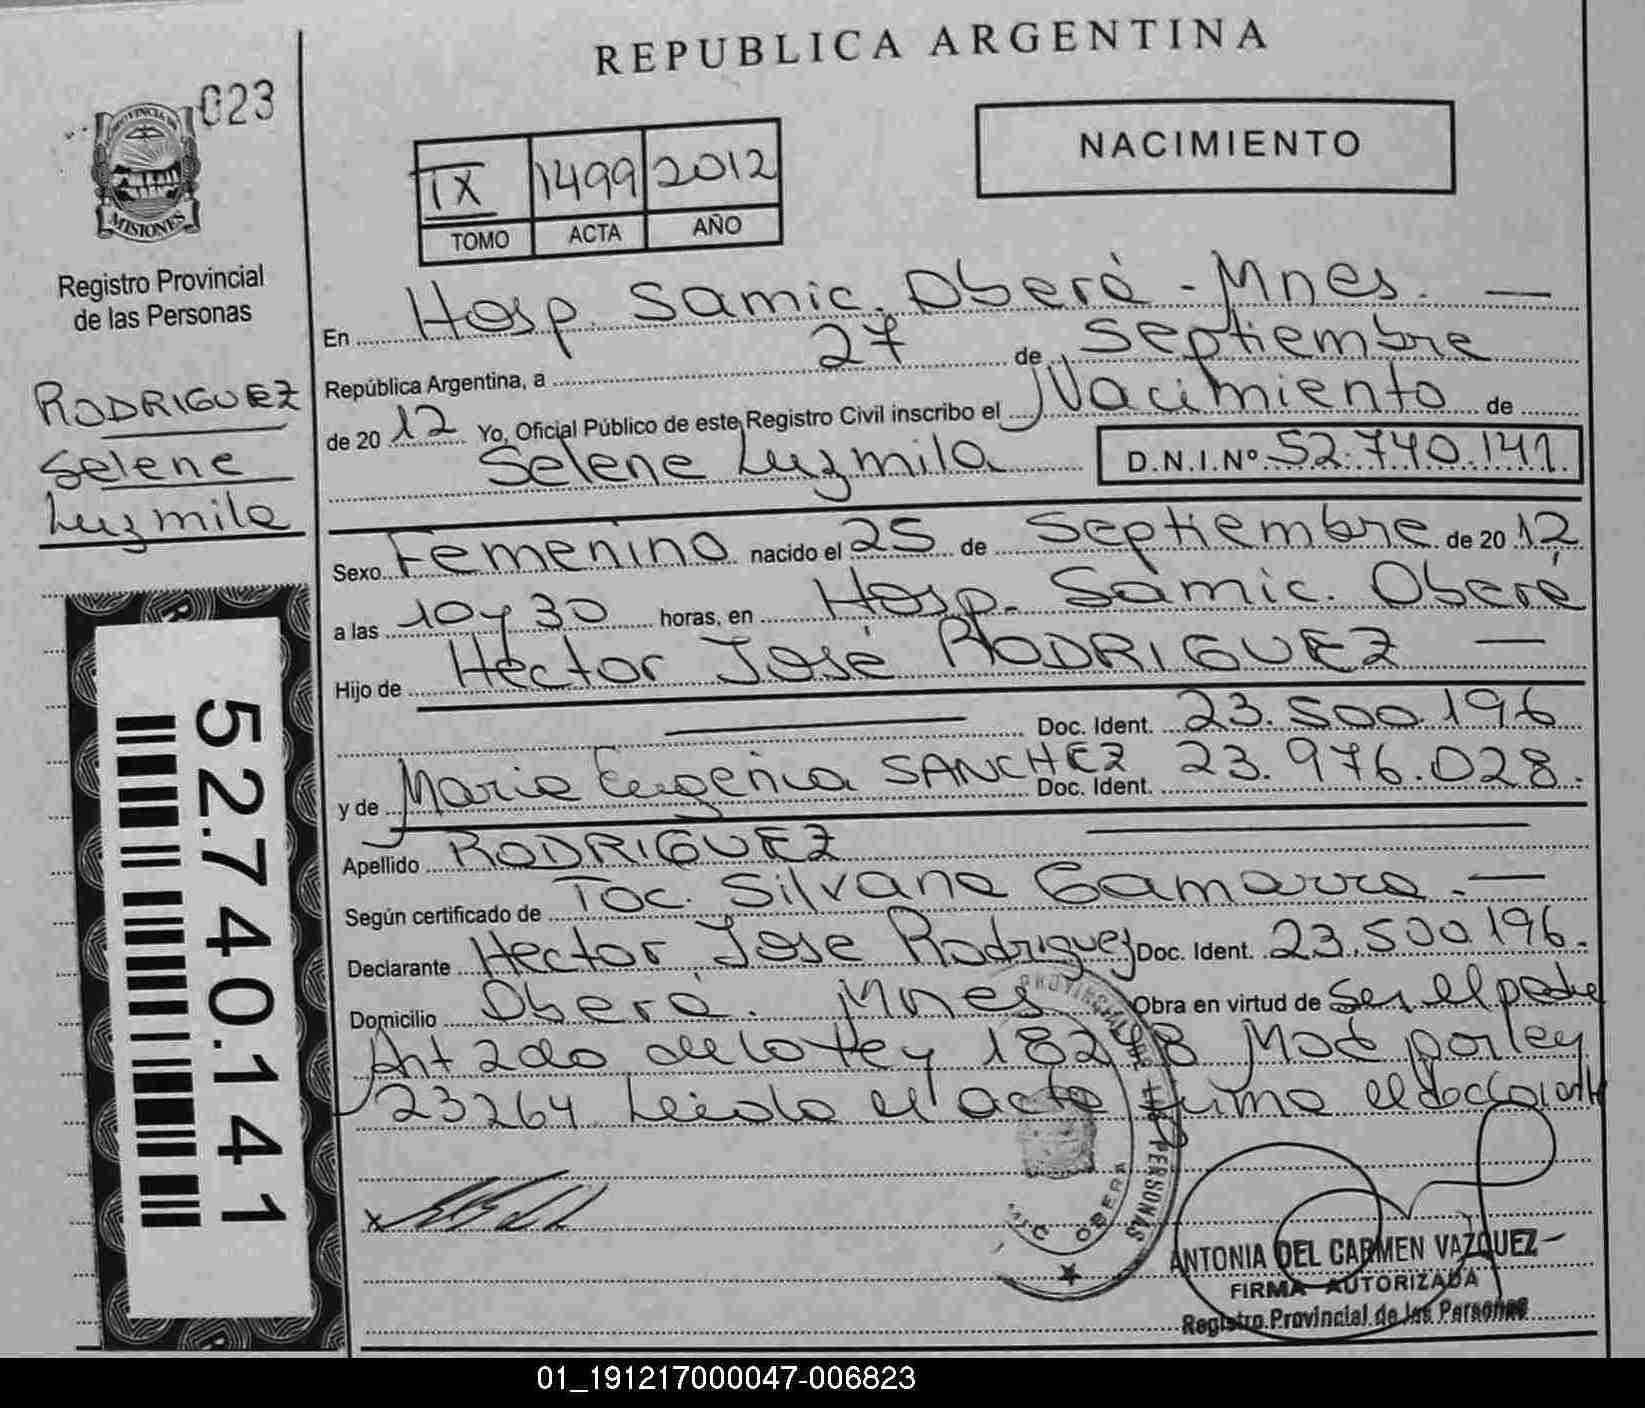 REPUBLICA ARGENTINA
023
PROVINCIA DE
MISIONES
Registro Provincial
de las Personas
RODRIGUEZ
Selene
Luzmila
52.740.141
IX 1499 2012
TOMO ACTA AÑO
NACIMIENTO
En Hosp. Samic. Oberá - Mnes. —
República Argentina, a 27 de Septiembre
de 20 12 Yo, Oficial Público de este Registro Civil inscribo el Nacimiento de
Selene Luzmila D.N.I.Nº 52.740.141.
Sexo Femenino nacido el 25 de Septiembre de 20 12
a las 10 y 30 horas, en Hosp. Samic. Oberá
Hijo de Héctor José RODRIGUEZ —
Doc. Ident. 23.500.196
y de Maria Eugenia SANCHEZ Doc. Ident. 23.976.028.
Apellido RODRIGUEZ
Según certificado de Toc. Silvana Gamarra. —
Declarante Hector Jose Rodriguez Doc. Ident. 23.500.196.
Domicilio Oberá. Mnes Obra en virtud de ser el padre
Art 2do de la ley 18248 Mod por ley
23264 Leida el acta firma el declarante
x
PROVINCIAL DE LAS PERSONAS
OBERA
ANTONIA DEL CARMEN VAZQUEZ
FIRMA AUTORIZADA
Registro Provincial de las Personas
01_191217000047-006823